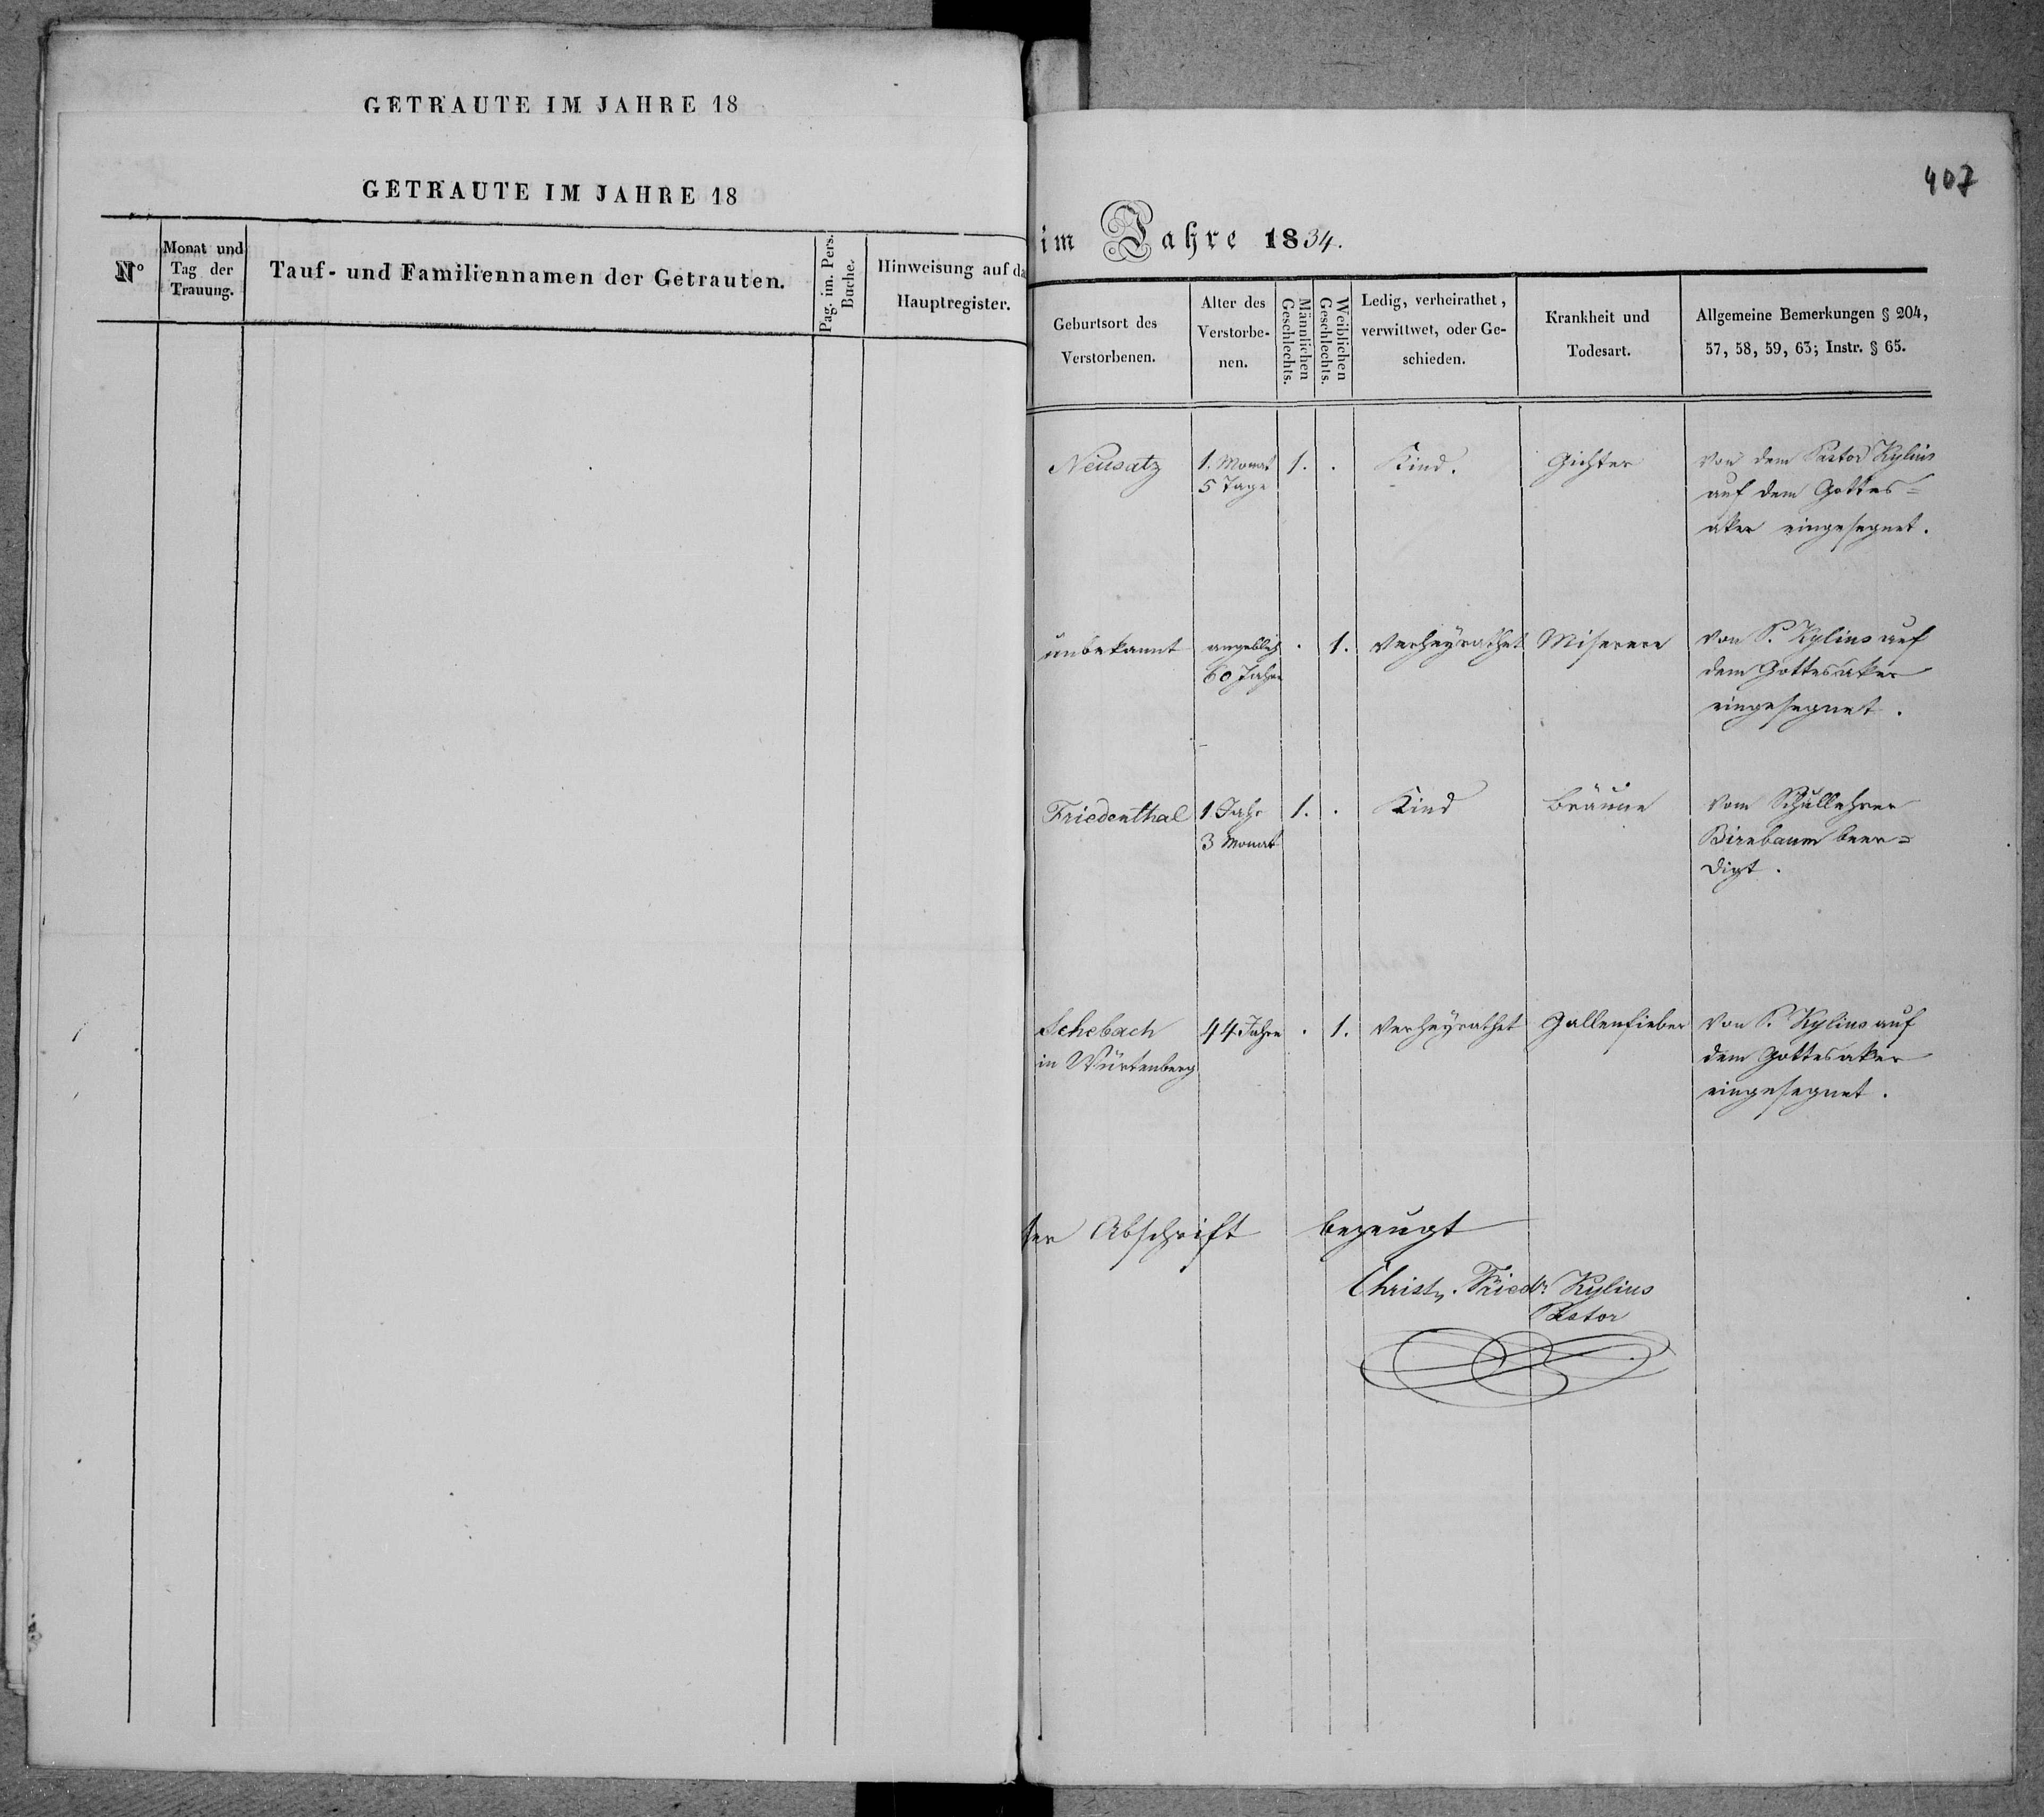 GETRAUTE IM JAHRE 18
GETRAUTE IM JAHRE 18
No
Monat und
Tag der
Trauung.
Tauf- und Familiennamen der Getrauten.
Pag. im. Pers.
Buche.
Hinweisung auf da
Hauptregister.
407
im Jahre 1834.
Geburtsort des
Verstorbenen.
Alter des
Verstorbe-
nen.
Männlichen
Geschlechts.
Weiblichen
Geschlechts.
Ledig, verheirathet,
verwittwet, oder Ge-
schieden.
Krankheit und
Todesart.
Allgemeine Bemerkungen § 204,
57, 58, 59, 63; Instr. § 65.
Neusatz 1. Monat 1. . Kind. Gichter Von dem Pastor Kylius
5 Tage auf dem Gottes=
aker eingesegnet.
unbekannt angeblich . 1. Verheyrathet Miserere Von P. Kylius auf
60 Jahre dem Gottesaker
eingesegnet.
Friedenthal 1. Jahr 1. . Kind Bräune Vom Schullehrer
3 Monat Birnbaum beer=
digt.
Schebach 44 Jahre . 1. Verheyrathet Gallenfieber Von P. Kylius auf
in Würtenberg dem Gottesaker
eingesegnet.
ser Abschrift bezeugt
Christn. Friedr. Kylius
Pastor